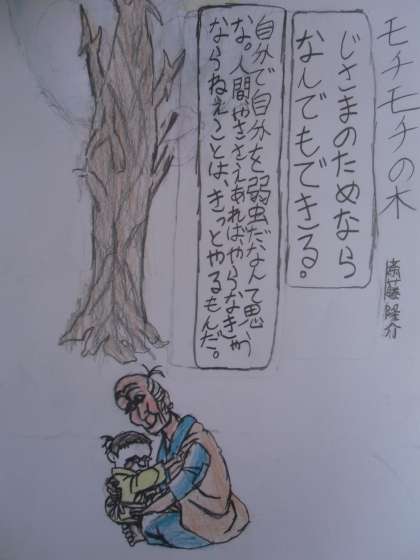 モチモチの木
斎藤隆介
じさまのためなら
なんでもできる。
自分で自分を弱虫だなんて思う
な。人間やささえあれば、やらなきゃ
ならねぇことは、きっとやるもんだ。